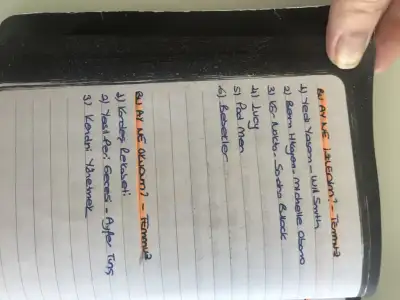 BU AY NE İZLEDİM? - TEMMUZ
1) Yedi Yaşam - Will Smith
2) Benim Hikayem - Michelle Obama
3) Kör Nokta - Sandra Bullock
4) Lucy
5) Pad Man
6) Bebekler
BU AY NE OKUDUM? - TEMMUZ
1) Kardeş Rekabeti
2) Yeşil Peri Gecesi - Ayfer Tunç
3) Kendini Yönetmek